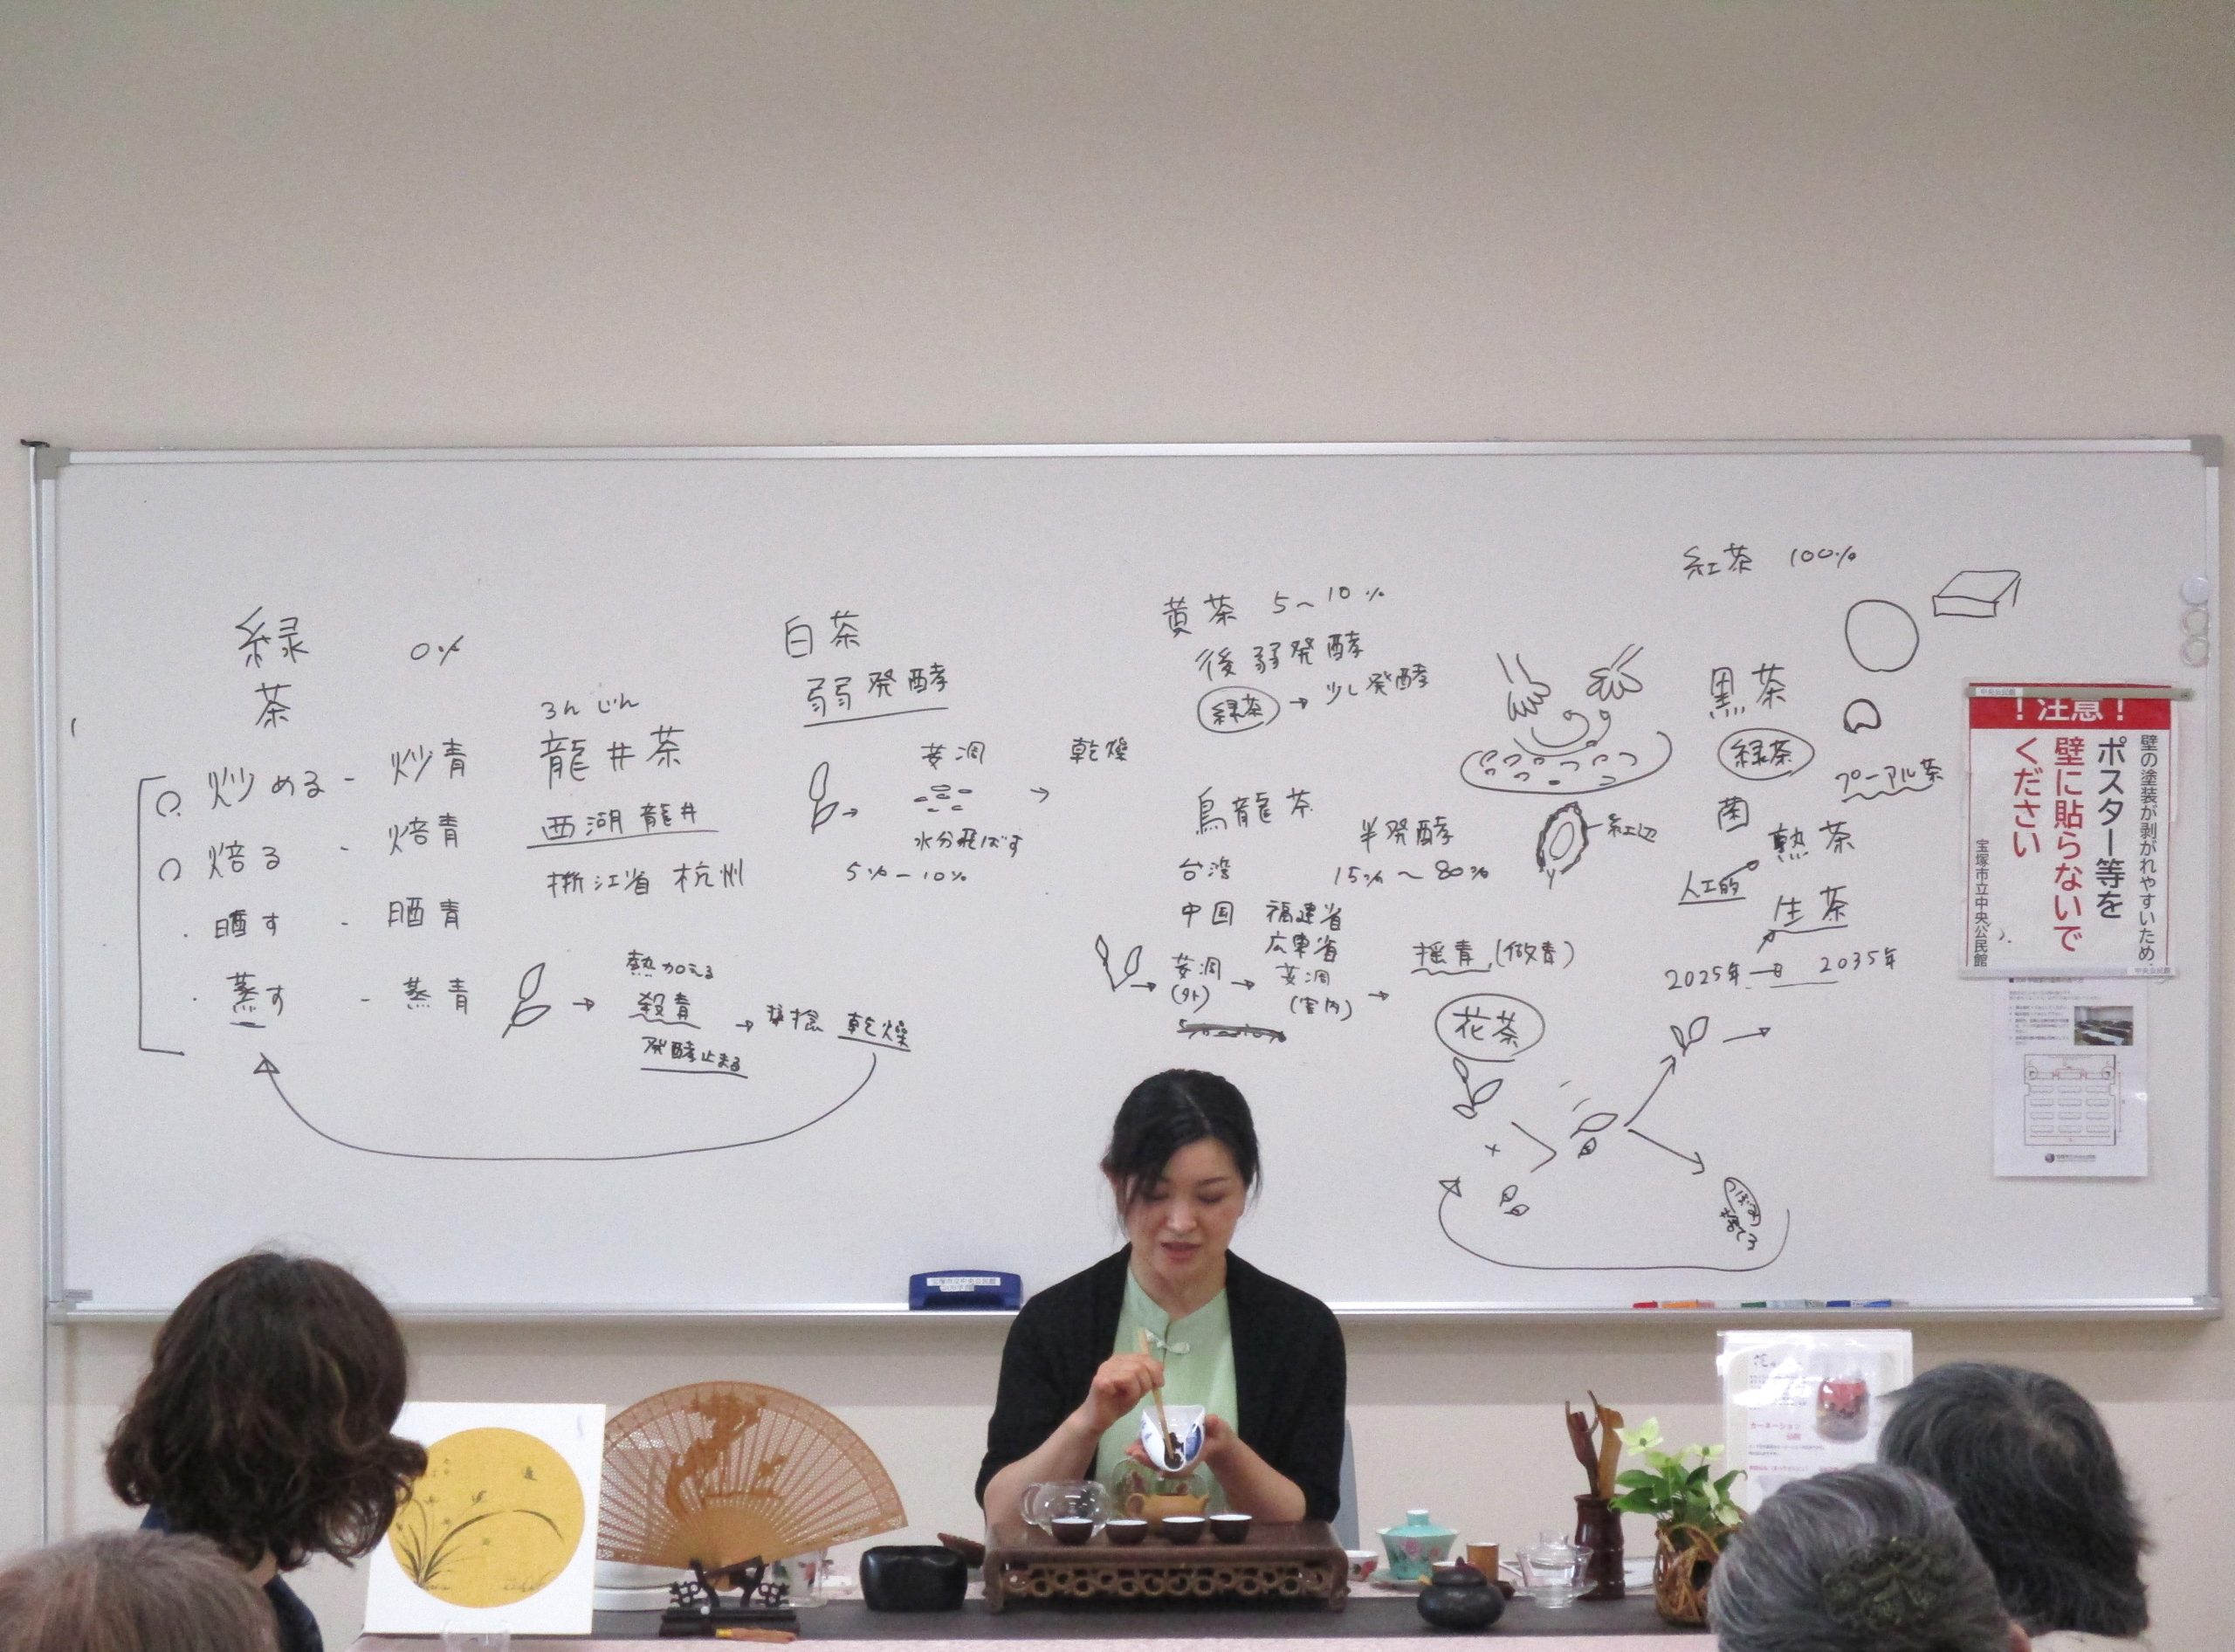 緑茶 0%
炒める - 炒青
焙る - 焙青
晒す - 晒青
蒸す - 蒸青
ろんじん
龍井茶
西湖龍井
浙江省 杭州
熱加える
殺青
発酵止まる
→ 揉捻 乾燥
白茶
弱発酵
萎凋 → 乾燥
水分飛ばす
5%-10%
黄茶 5~10%
後弱発酵
緑茶 → 少し発酵
烏龍茶
半発酵
15%~80%
台湾
中国 福建省
広東省
萎凋
(外)
萎凋
(室内)
揺青 (做青)
紅辺
花茶
つぼみ
捨てる
紅茶 100%
黒茶
緑茶
プーアル茶
菌
熟茶
人工的
生茶
2025年 → 2035年
!注意!
壁の塗装が剥がれやすいため、
ポスター等を
壁に貼らないで
ください
宝塚市立中央公民館
中央公民館
中央公民館
宝塚市立中央公民館
カーネーション